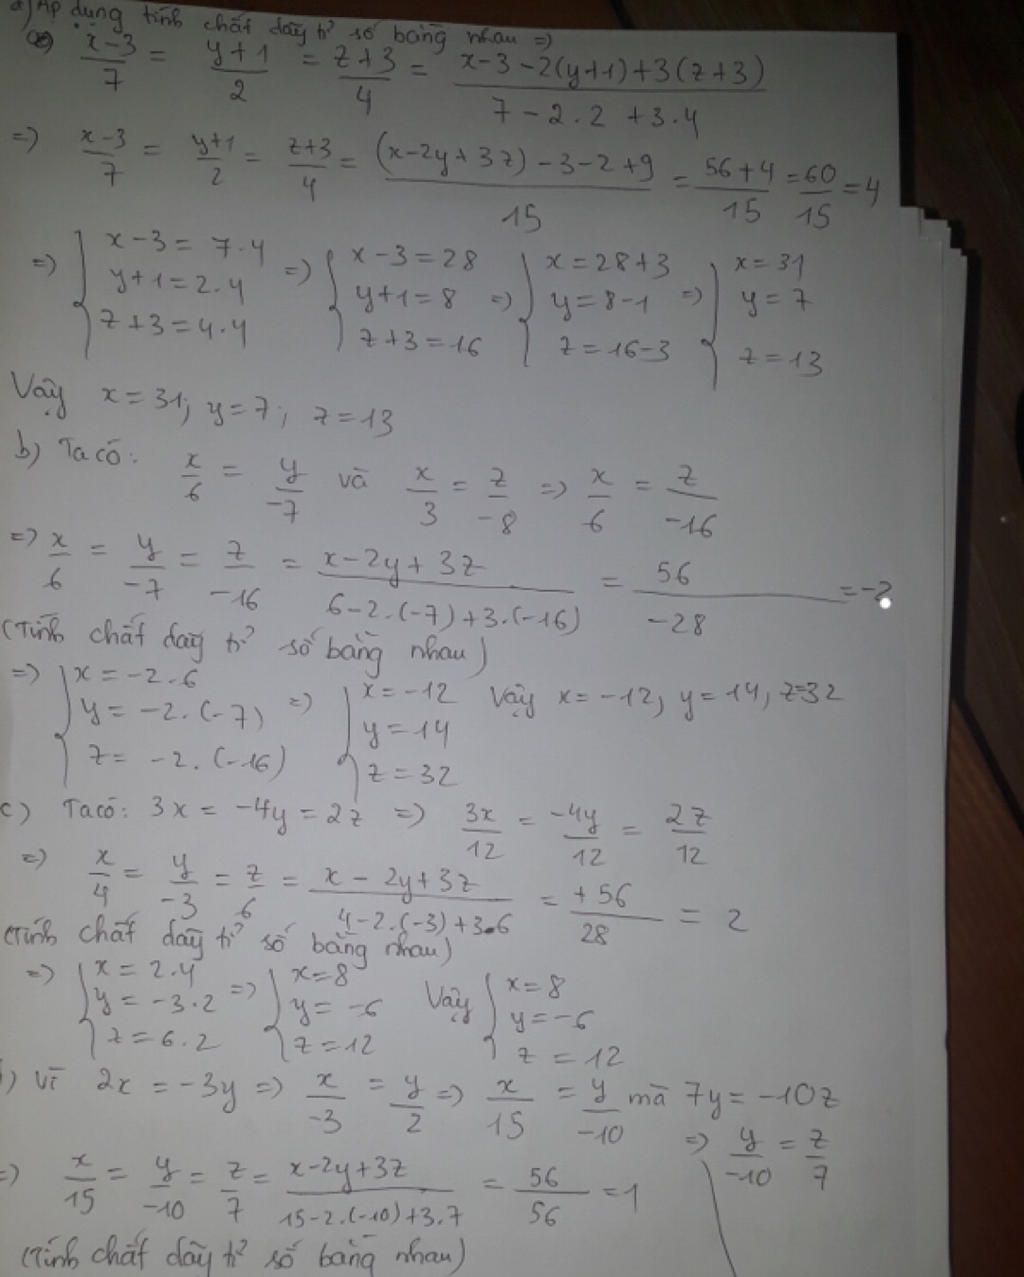 a) Áp dụng tính chất dãy tỉ số bằng nhau =)
x-3/7 = y+1/2 = z+3/4 = x-3-2(y+1)+3(z+3)/7-2.2+3.4
=) x-3/7 = y+1/2 = z+3/4 = (x-2y+3z)-3-2+9/15 = 56+4/15 = 60/15 = 4
=) { x-3=7.4 y+1=2.4 z+3=4.4 =) { x-3=28 y+1=8 z+3=16 =) { x=28+3 y=8-1 z=16-3 =) { x=31 y=7 z=13
Vậy x=31; y=7; z=13
b) Ta có: x/6 = y/-7 và x/3 = z/-8 =) x/6 = z/-16
=) x/6 = y/-7 = z/-16 = x-2y+3z/6-2.(-7)+3.(-16) = 56/-28 = -2
(Tính chất dãy tỉ số bằng nhau)
=) { x=-2.6 y=-2.(-7) z=-2.(-16) =) { x=-12 y=14 z=32 Vậy x=-12, y=14, z=32
c) Ta có: 3x = -4y = 2z =) 3x/12 = -4y/12 = 2z/12
=) x/4 = y/-3 = z/6 = x-2y+3z/4-2.(-3)+3.6 = +56/28 = 2
(Tính chất dãy tỉ số bằng nhau)
=) { x=2.4 y=-3.2 z=6.2 =) { x=8 y=-6 z=12 Vậy { x=8 y=-6 z=12
) Vì 2x = -3y =) x/-3 = y/2 =) x/15 = y/-10 mà 7y = -10z
=) y/-10 = z/7
=) x/15 = y/-10 = z/7 = x-2y+3z/15-2.(-10)+3.7 = 56/56 = 1
(Tính chất dãy tỉ số bằng nhau)